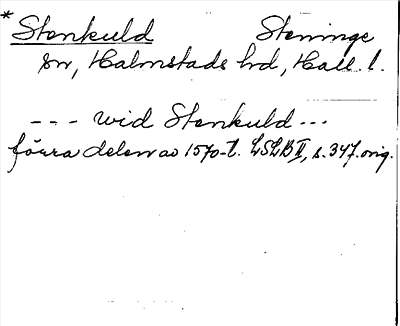 *Stenkuld Steninge
sn, Halmstads hd, Hall. l.
--- wid Stenkuld ---
förra delen av 1570-t. LSLB II, s. 347. orig.